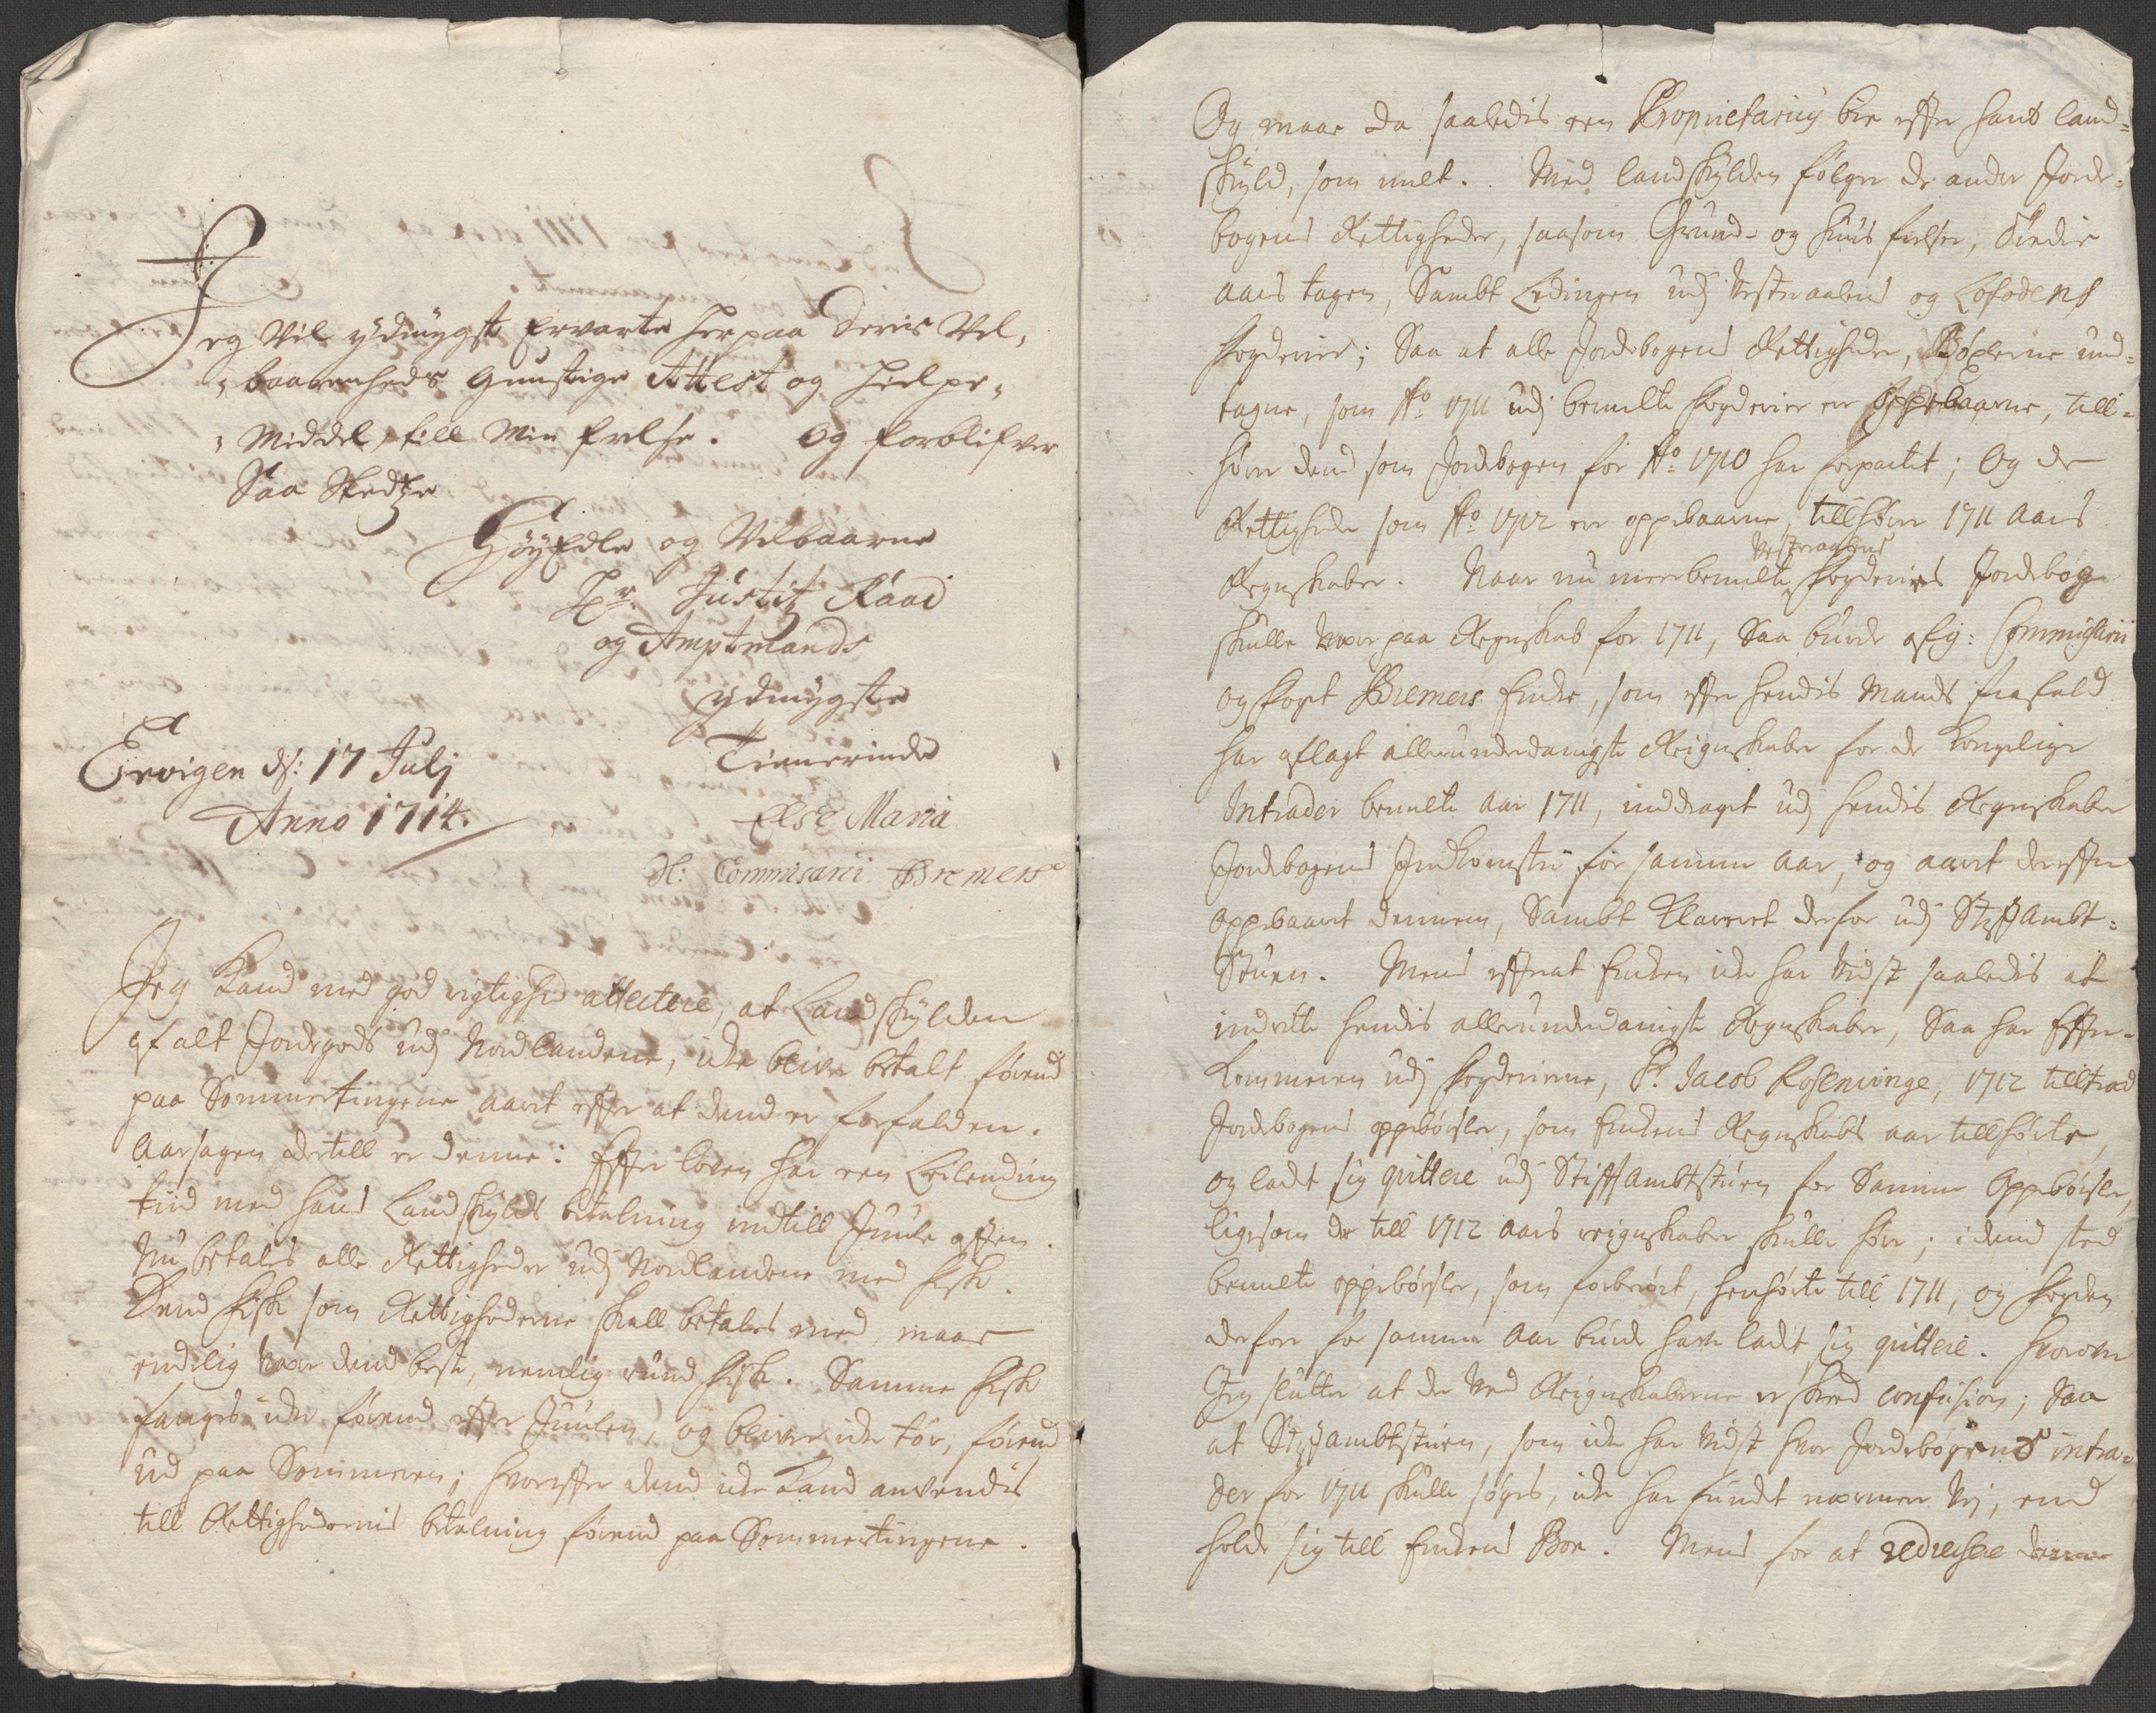 Jeg Vil ydmygst Ervarte herpaa Deris Vel,
,,baarenheds Gunstige Attest og hielpe,
,,Middel, till Min frelse. Og forblifver
Saa Stedtze
HöyEdle og Velbaarne
Hr. Justitz Raad
og Amptmands
ydmygste
Tienerinde
Else Maria
Sl: Commisarii Bremers
Ervigen ds: 17 Julj
Anno 1714.
Jeg Kand med god rigtighed attestere, at Landskylden
af alt Jordegods udj Nordlandene, icke bliver betalt förend
paa Sommertingene aaret effter at dend er forfalden.
Aarsagen dertill er denne: Effter loven har een Leilending
tiid med hans Landskylds betalning indtill Juule afften.
Nu betales alle Rettigheder udj Nordlandene med fisk.
Dend fisk som Rettighederne skall betales med, maae
endelig være dend beste, nemlig rund fisk. Samme fisk
fanges icke förend effter Juulen, og bliver icke tör, förend
ud paa Sommeren; hvoreffter dend icke Kand anvendis
till Rettighedernis betalning förend paa Sommertingene.
Og maae da saaledis een Proprietarius bie effter hans land=
skyld, som melt. Med landskylden fölger de andre Jorde-
bogens Rettigheder, saasom Grund- og huus leyer, tredie
aars tagen, Sambt Ledingen udj Vesteraalens og Lofodens
fogderier; Saa at alle Jordebogens Rettigheder, Böxlerne und-
tagne, som Ao 1711 udj bemelte fogderier er oppebaarne, till-
hörer dend som Jordebogen for Ao 1710 har forpactet; Og de
Rettigheder som Ao 1712 er oppebaarne, tillhörer 1711 aars
Regnskaber. Naar nu meerbemelte Vesteraalens fogderies Jordebog
skulle være paa Regnskab for 1711, Saa burde afg: Commissarii
og foget Bremers Encke, som effter hendis Mands frafald
har aflagt allerunderdanigste Reignskaber for de Kongelige
Intrader bemelte aar 1711, inddraget udj hendis Regnskaber
Jordebogens Indkomster for samme aar, og aaret dereffter
oppebaaret dennem, Sambt Klareret derfor udj StiffAmbt-
Stuen. Mens effterat Encken icke har vidst saaledis at
indrette hendis allerunderdanigste Regnskaber, Saa har Effter-
kommeren udj fogderierne, Sr. Jacob Rosenvinge, 1712 tilltraad
Jordebogens oppebörsler, som Enckens Regnskabs aar tillhörte,
og ladt sig qvittere udj StifftAmbtstuen for Samme Oppebörsler,
ligesom de till 1712 aars reignskaber skulle höre; i dend sted
bemelte oppebörsler, som forberört, henhörte till 1711, og fogden
derfore for samme aar burde have ladt sig qvittere. Hvorover
Jeg slutter at der ved Reignskaberne er skeed confusion; Saa
at Stiftambtstuen, som icke har vidst hvor Jordebogens intra-
der for 1711 skulle söges, icke har fundt nærmere Vej, end
holde sig till Enckens Boe. Mens for at redressere denne